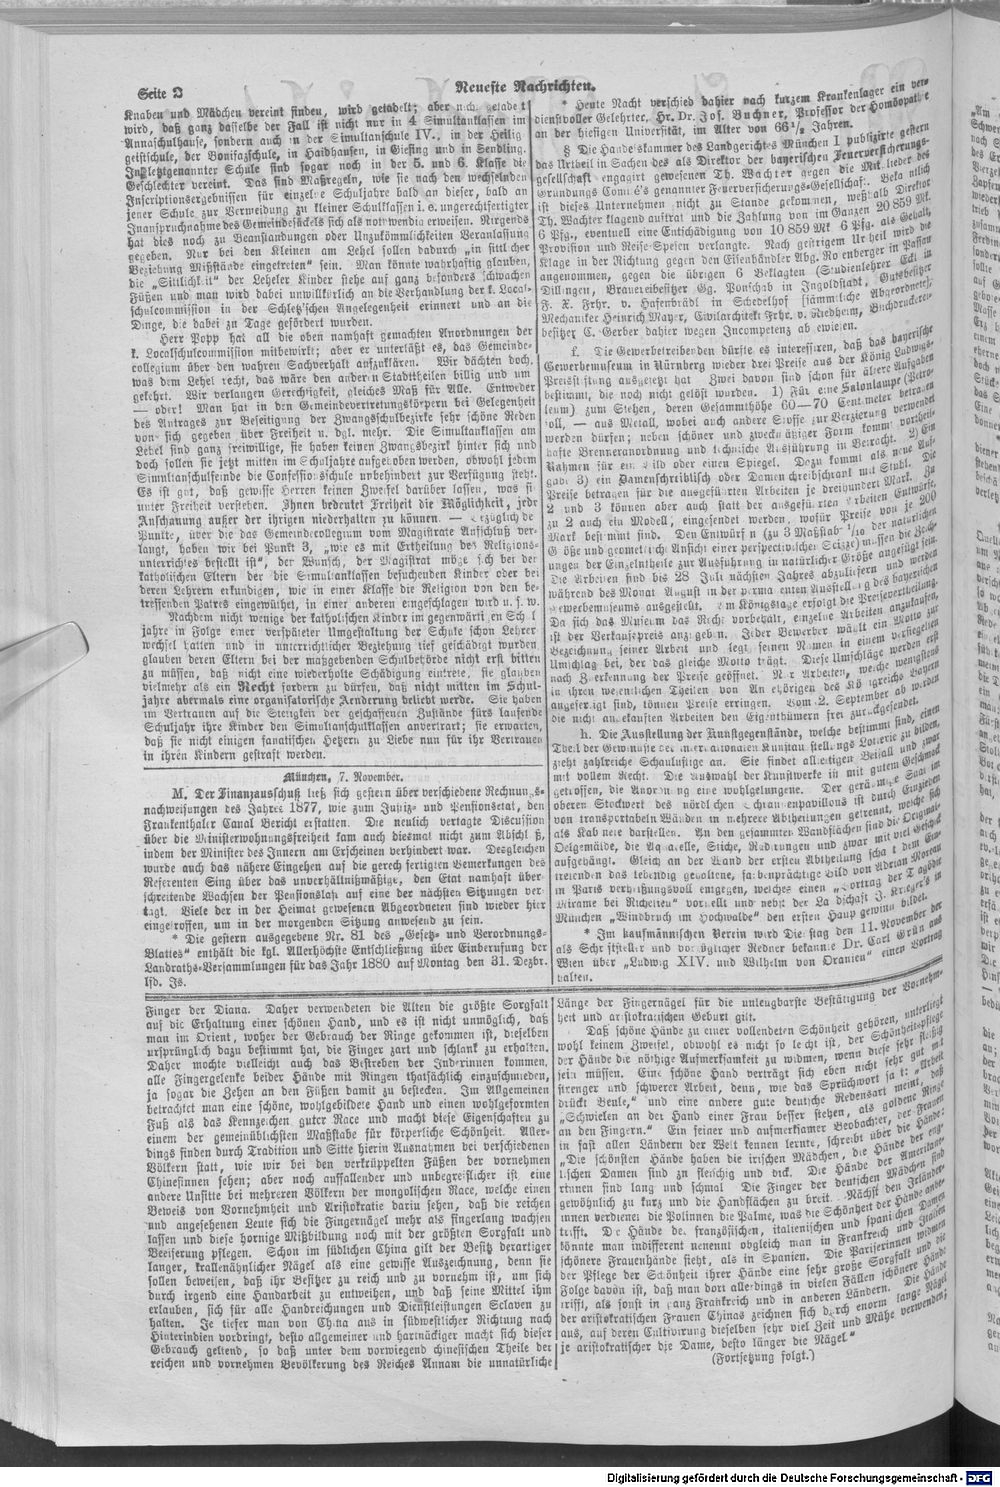 Seite 2
Neueste Nachrichten.
Knaben und Mädchen vereint finden, wird getadelt; aber nicht getadelt
wird, daß ganz dasselbe der Fall ist nicht nur in 4 Simultanklassen im
Annaschulhause, sondern auch in der Simultanschule IV., in der Heilig-
geistschule, der Bonifazschule, in Haidhausen, in Giesing und in Sendling.
In letztgenannter Schule sind sogar noch in der 5. und 6. Klasse die
Geschlechter vereint. Das sind Maßregeln, wie sie nach den wechselnden
Inscriptionsergebnissen für einzelne Schuljahre bald an dieser, bald an
jener Schule zur Vermeidung zu kleiner Schulklassen i. e. ungerechtfertigter
Inanspruchnahme des Gemeindesäckels sich als nothwendig erweisen. Nirgends
hat dies noch zu Beanstandungen oder Unzukömmlichkeiten Veranlassung
gegeben. Nur bei den Kleinen am Lehel sollen dadurch „in sittlicher
Beziehung Mißstände eingetreten“ sein. Man könnte wahrhaftig glauben,
die „Sittlichkeit“ der Leheler Kinder stehe auf ganz besonders schwachen
Füßen und man wird dabei unwillkürlich an die Verhandlung der k. Local-
schulcommission in der Schletz'schen Angelegenheit erinnert und an die
Dinge, die dabei zu Tage gefördert wurden.
Herr Popp hat all die oben namhaft gemachten Anordnungen der
k. Localschulcommission mitbewirkt; aber er unterläßt es, das Gemeinde-
collegium über den wahren Sachverhalt aufzuklären. Wir dächten doch,
was dem Lehel recht, das wäre den anderen Stadttheilen billig und um-
gekehrt. Wir verlangen Gerechtigkeit, gleiches Maß für Alle. Entweder
— oder! Man hat in den Gemeindevertretungskörpern bei Gelegenheit
des Antrages zur Beseitigung der Zwangsschulbezirke sehr schöne Reden
von sich gegeben über Freiheit u. dgl. mehr. Die Simultanklassen am
Lehel sind ganz freiwillige, sie haben keinen Zwangsbezirk hinter sich und
doch sollen sie jetzt mitten im Schuljahre aufgehoben werden, obwohl jedem
Simultanschulfeinde die Confessionsschule unbehindert zur Verfügung steht.
Es ist gut, daß gewisse Herren keinen Zweifel darüber lassen, was sie
unter Freiheit verstehen. Ihnen bedeutet Freiheit die Möglichkeit, jede
Anschauung außer der ihrigen niederhalten zu können. — Bezüglich der
Punkte, über die das Gemeindecollegium vom Magistrate Aufschluß ver-
langt, haben wir bei Punkt 3, „wie es mit Ertheilung des Religions-
unterrichtes bestellt ist“, der Wunsch, der Magistrat möge sich bei den
katholischen Eltern der die Simultanklassen besuchenden Kinder oder bei
deren Lehrern erkundigen, wie in einer Klasse die Religion von den be-
treffenden Patres eingewüthet, in einer anderen eingeschlagen wird u. s. w.
Nachdem nicht wenige der katholischen Kinder im gegenwärtigen Schul-
jahre in Folge einer verspäteten Umgestaltung der Schule schon Lehrer
wechsel hatten und in unterrichtlicher Beziehung tief geschädigt wurden,
glauben deren Eltern bei der maßgebenden Schulbehörde nicht erst bitten
zu müssen, daß nicht eine wiederholte Schädigung eintrete, sie glauben
vielmehr als ein Recht fordern zu dürfen, daß nicht mitten im Schul-
jahre abermals eine organisatorische Aenderung beliebt werde. Sie haben
im Vertrauen auf die Stetigkeit der geschaffenen Zustände fürs laufende
Schuljahr ihre Kinder den Simultanschulklassen anvertraut; sie erwarten,
daß sie nicht einigen fanatischen Hetzern zu Liebe nun für ihr Vertrauen
in ihren Kindern gestraft werden.
München, 7. November.
M. Der Finanzausschuß ließ sich gestern über verschiedene Rechnungs-
nachweisungen des Jahres 1877, wie zum Justiz- und Pensionsetat, den
Frankenthaler Canal Bericht erstatten. Die neulich vertagte Discussion
über die Ministerwohnungsfreiheit kam auch diesmal nicht zum Abschluß,
indem der Minister des Innern am Erscheinen verhindert war. Desgleichen
wurde auch das nähere Eingehen auf die gerechtfertigten Bemerkungen des
Referenten Sing über das unverhältnißmäßige, den Etat namhaft über-
schreitende Wachsen der Pensionslast auf eine der nächsten Sitzungen ver-
tagt. Viele der in der Heimat gewesenen Abgeordneten sind wieder hier
eingetroffen, um in der morgenden Sitzung anwesend zu sein.
* Die gestern ausgegebene Nr. 81 des „Gesetz- und Verordnungs-
Blattes“ enthält die kgl. Allerhöchste Entschließung über Einberufung der
Landraths-Versammlungen für das Jahr 1880 auf Montag den 31. Dezbr.
lfd. Js.
* Heute Nacht verschied dahier nach kurzem Krankenlager ein ver-
dienstvoller Gelehrter, Hr. Dr. Jos. Buchner, Professor der Homöopathie
an der hiesigen Universität, im Alter von 66½ Jahren.
§ Die Handelskammer des Landgerichtes München I publizirte gestern
das Urtheil in Sachen des als Direktor der bayerischen Feuerversicherungs-
gesellschaft engagirt gewesenen Th. Wachter gegen die Mitglieder des
Gründungs Comité's genannter Feuerversicherungs-Gesellschaft. Bekanntlich
ist dieses Unternehmen nicht zu Stande gekommen, weßhalb Direktor
Th. Wachter klagend auftrat und die Zahlung von im Ganzen 20 859 Mk.
6 Pfg., eventuell eine Entschädigung von 10 859 Mk 6 Pfg. als Gehalt,
Provision und Reise-Spesen verlangte. Nach gestrigem Urtheil wird die
Klage in der Richtung gegen den Eisenhändler Abg. Rosenberger in Passau
angenommen, gegen die übrigen 6 Beklagten (Studienlehrer Eckl in
Dillingen, Brauereibesitzer Gg. Ponschab in Ingolstadt, Gutsbesitzer
F. X. Frhr. v. Hafenbrädl in Schedelhof [sämmtliche Abgeordnete],
Mechaniker Heinrich Mayer, Civilarchitekt Frhr. v. Riedheim, Buchdruckerei-
besitzer C. Gerber dahier wegen Incompetenz abgewiesen.
f. Die Gewerbetreibenden dürfte es interessiren, daß das bayerische
Gewerbemuseum in Nürnberg wieder drei Preise aus der König Ludwigs-
Preisstiftung ausgesetzt hat. Zwei davon sind schon für ältere Aufgaben
bestimmt, die noch nicht gelöst wurden. 1) Für eine Salonlampe (Petro-
leum) zum Stehen, deren Gesammthöhe 60—70 Centimeter betragen
soll, — aus Metall, wobei auch andere Stoffe zur Verzierung verwendet
werden dürfen; neben schöner und zweckmäßiger Form kommt vortheil-
hafte Brenneranordnung und technische Ausführung in Betracht. 2) Ein
Rahmen für ein Bild oder einen Spiegel. Dazu kommt als neue Auf-
gabe 3) ein Damenschreibtisch oder Damenschreibschrank mit Stuhl. Die
Preise betragen für die ausgeführten Arbeiten je dreihundert Mark. Zu
2 und 3 können aber auch statt der ausgeführten Arbeiten Entwürfe,
zu 2 auch ein Modell, eingesendet werden, wofür Preise von je 200
Mark bestimmt sind. Den Entwürfen (zu 3 Maßstab 1/10 der natürlichen
Größe und geometrische Ansicht einer perspectivischen Skizze) müssen die Zeich-
nungen der Einzelntheile zur Ausführung in natürlicher Größe angefügt sein.
Die Arbeiten sind bis 28 Juli nächsten Jahres abzuliefern und werden
während des Monat August in der permanenten Ausstellung des bayerischen
Gewerbemuseums ausgestellt. Am Königstage erfolgt die Preisevertheilung.
Da sich das Museum das Recht vorbehält, einzelne Arbeiten anzukaufen,
ist der Verkaufspreis anzugeben. Jeder Bewerber wählt ein Motto zur
Bezeichnung seiner Arbeit und legt seinen Namen in einem versiegelten
Umschlag bei, der das gleiche Motto trägt. Diese Umschläge werden erst
nach Zuerkennung der Preise geöffnet. Nur Arbeiten, welche wenigstens
in ihren wesentlichen Theilen von Angehörigen des Königreichs Bayern
angefertigt sind, können Preise erringen. Vom 2. September ab werden
die nicht angekauften Arbeiten den Eigenthümern frei zurückgesendet.
h. Die Ausstellung der Kunstgegenstände, welche bestimmt sind, einen
Theil der Gewinnste der internationalen Kunstausstellungs Lotterie zu bilden,
zieht zahlreiche Schaulustige an. Sie findet allseitigen Beifall und zwar
mit vollem Recht. Die Auswahl der Kunstwerke ist mit gutem Geschmack
getroffen, die Anordnung eine wohlgelungene. Der geräumige Saal im
oberen Stockwert des nördlichen Schrannenpavillons ist durch Einziehen
von transportabeln Wänden in mehrere Abtheilungen getrennt, welche sich
als Kabinete darstellen. An den gesammten Wandflächen sind die Original-
Oelgemälde, die Aquarelle, Stiche, Radirungen und zwar mit viel Geschick
aufgehängt. Gleich an der Wand der ersten Abtheilung schaut dem Ein-
tretenden das lebendig gehaltene, farbenprächtige Bild von Adrian Moreau
in Paris verheißungsvoll entgegen, welches einen „Vortrag der Tragödie
Mirame bei Richelieu“ vorstellt und nebst der Landschaft J. Krieger's in
München „Windbruch im Hochwalde“ den ersten Hauptgewinn bildet.
* Im kaufmännischen Verein wird Dienstag den 11. November der
als Schriftsteller und vorzüglicher Redner bekannte Dr. Carl Grün aus
Wien über „Ludwig XIV. und Wilhelm von Oranien“ einen Vortrag
halten.
Finger der Diana. Daher verwendeten die Alten die größte Sorgfalt
auf die Erhaltung einer schönen Hand, und es ist nicht unmöglich, daß
man im Orient, woher der Gebrauch der Ringe gekommen ist, dieselben
ursprünglich dazu bestimmt hat, die Finger zart und schlank zu erhalten.
Daher mochte vielleicht auch das Bestreben der Inderinnen kommen,
alle Fingergelenke beider Hände mit Ringen thatsächlich einzuschmieden,
ja sogar die Zehen an den Füßen damit zu bestecken. Im Allgemeinen
betrachtet man eine schöne, wohlgebildete Hand und einen wohlgeformten
Fuß als das Kennzeichen guter Race und macht diese Eigenschaften zu
einem der gemeinüblichsten Maßstabe für körperliche Schönheit. Aller-
dings finden durch Tradition und Sitte hierin Ausnahmen bei verschiedenen
Völkern statt, wie wir bei den verkrüppelten Füßen der vornehmen
Chinesinnen sehen; aber noch auffallender und unbegreiflicher ist eine
andere Unsitte bei mehreren Völkern der mongolischen Race, welche einen
Beweis von Vornehmheit und Aristokratie darin sehen, daß die reichen
und angesehenen Leute sich die Fingernägel mehr als fingerlang wachsen
lassen und diese hornige Mißbildung noch mit der größten Sorgfalt und
Beeiferung pflegen. Schon im südlichen China gilt der Besitz derartiger
langer, krallenähnlicher Nägel als eine gewisse Auszeichnung, denn sie
sollen beweisen, daß ihr Besitzer zu reich und zu vornehm ist, um sich
durch irgend eine Handarbeit zu entweihen, und daß seine Mittel ihm
erlauben, sich für alle Handreichungen und Dienstleistungen Sclaven zu
halten. Je tiefer man von China aus in südwestlicher Richtung nach
Hinterindien vordringt, desto allgemeiner und hartnäckiger macht sich dieser
Gebrauch geltend, so daß unter dem vorwiegend chinesischen Theile der
reichen und vornehmen Bevölkerung des Reiches Annam die unnatürliche
Länge der Fingernägel für die unleugbarste Bestätigung der Vornehm-
heit und aristokratischen Geburt gilt.
Daß schöne Hände zu einer vollendeten Schönheit gehören, unterliegt
wohl keinem Zweifel, obwohl es nicht so leicht ist, der Schönheitspflege
der Hände die nöthige Aufmerksamkeit zu widmen, wenn diese sehr fleißig
sein müssen. Eine schöne Hand verträgt sich eben nicht sehr gut mit
strenger und schwerer Arbeit, denn, wie das Sprüchwort sagt: „Arbeit
drückt Beule,“ und eine andere gute deutsche Redensart meint, daß
„Schwielen an der Hand einer Frau besser stehen, als goldene Ringe
an den Fingern.“ Ein feiner und aufmerksamer Beobachter, der Frauen
in fast allen Ländern der Welt kennen lernte, schreibt über die Hände:
„Die schönsten Hände haben die irischen Mädchen, die Hände der eng-
lischen Damen sind zu fleischig und dick. Die Hände der Amerikane-
rinnen sind lang und schmal. Die Finger der deutschen Mädchen sind
gewöhnlich zu kurz und die Handflächen zu breit. Nächst den Irländer-
innen verdienen die Polinnen die Palme, was die Schönheit der Hände anbe-
trifft. Die Hände der französischen, italienischen und spanischen Damen
könnte man indifferent nennen, obgleich man in Frankreich und Italien
schönere Frauenhände sieht, als in Spanien. Die Pariserinnen widmen
der Pflege der Schönheit ihrer Hände eine sehr große Sorgfalt und die
Folge davon ist, daß man dort allerdings in vielen Fällen schönere Hände
trifft, als sonst in ganz Frankreich und in anderen Ländern. Die Hände
der aristokratischen Frauen Chinas zeichnen sich durch enorm lange Nägel
aus, auf deren Cultivirung dieselben sehr viel Zeit und Mühe verwenden;
je aristokratischer die Dame, desto länger die Nägel.“
(Fortsetzung folgt.)
Digitalisierung gefördert durch die Deutsche Forschungsgemeinschaft - DFG